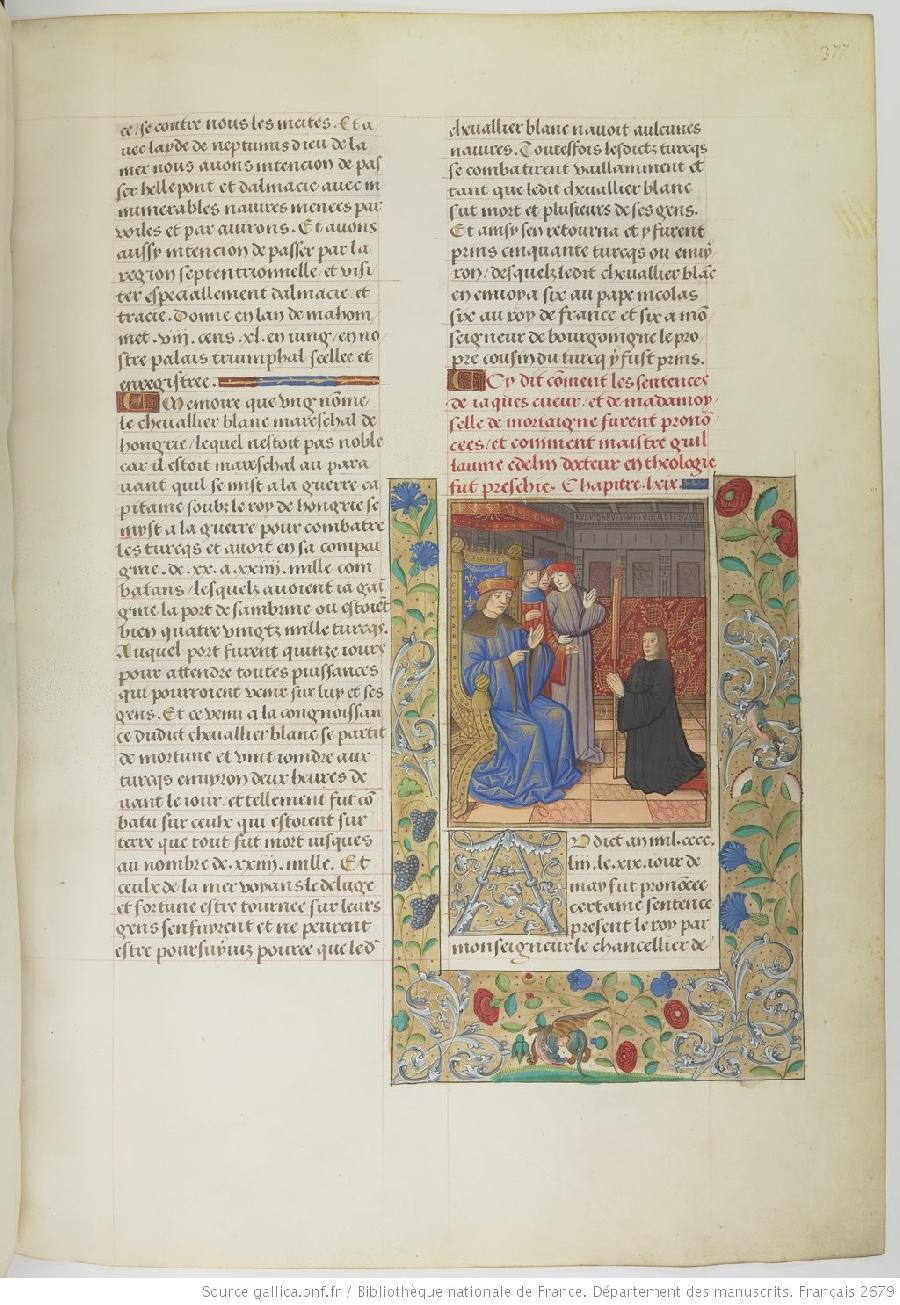 377
ce. se contre nous les incites. Et a
uec layde de neptunus dieu de la
mer nous auons intencion de pas
ser hellepont et dalmacie auec in
numerables nauires menees par
voiles et par auirons. Et auons
aussy intencion de passer par la
region septentrionnelle / et visi
ter especiallement dalmacie / et
tracie. Donne en lan de mahom
met. viij. cens. xl. en iung / en no
stre palais triumphal seelle et
enregistree.
Memoire que vng nōme
le cheuallier blanc mareschal de
hongrie / lequel nestoit pas noble
car il estoit mareschal au para
uant quil se mist a la guerre ca
pitaine soubz le roy de hongrie se
myst a la guerre pour combatre
les turcqs et auoit en sa compai
gnie. de. xx. a. xxiiij. mille com
batans / lesquelz auoient ia gai
gnie la port de sambrine ou estoiēt
bien quatre vingtz mille turcqs.
Auquel port furent quinze iours
pour attendre toutes puissances
qui pourroient venir sur luy et ses
gens. Et ce venu a la congnoissan
ce dudit cheuallier blanc se partit
de mortune et vint ioindre aux
turcqs enuyron deux heures de
uant le iour. et tellement fut cō
batu sur ceulx qui estoient sur
terre que tout fut mort iusques
au nombre de. xxiiij. mille. Et
ceulx de la mer voyans le deluge
et fortune estre tournee sur leurs
gens senfuyrent et ne peurent
estre poursuyuiz pource que led'
cheuallier blanc nauoit aulcunes
nauires. Toutesfois lesdictz turcqs
se combatirent vaillamment et
tant que ledit cheuallier blanc
fut mort et plusieurs de ses gens.
Et ainsy sen retourna et y furent
prins cinquante turcqs ou enuy
ron / desquelz ledit cheuallier blāc
en enuoya six au pape nicolas
six au roy de france et six a mō
seigneur de bourgoingne le pro
pre cousin du turcq y fust prins.
Cy dit cōment les sentences
de iaques cueur / et de madamoy
selle de mortaigne furent pronō
cees / et comment maistre guil
laume edelin docteur en theologie
fut preschie. Chapitre. lxix.
Udict an mil. cccc.
liij. le. xix. iour de
may fut pronōcee
certaine sentence
present le roy par
monseigneur le chancellier de
Source gallica.bnf.fr / Bibliothèque nationale de France. Département des manuscrits. Français 2679